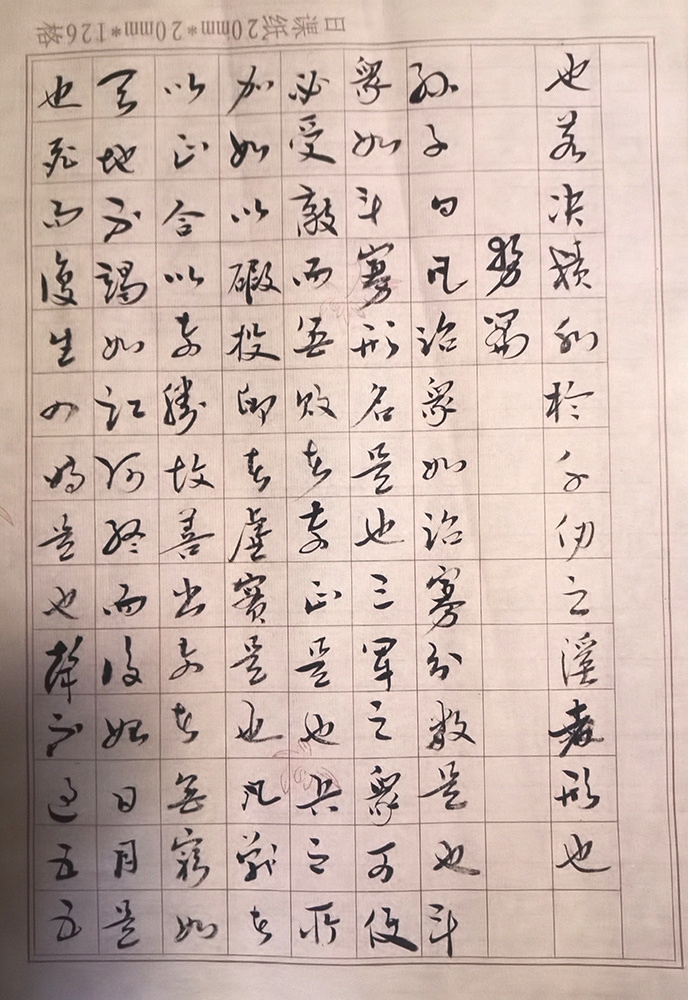 日课纸20mm*20mm*126格
也若决積水於千仞之溪者形也
勢篇
孫子曰凡治衆如治寡分數是也斗
衆如斗寡形名是也三軍之衆可使
必受敵而無敗者奇正是也兵之所
加如以碬投卵者虛實是也凡戰者
以正合以奇勝故善出奇者無窮如
天地不竭如江河終而復始日月是
也死而復生四時是也聲不過五五